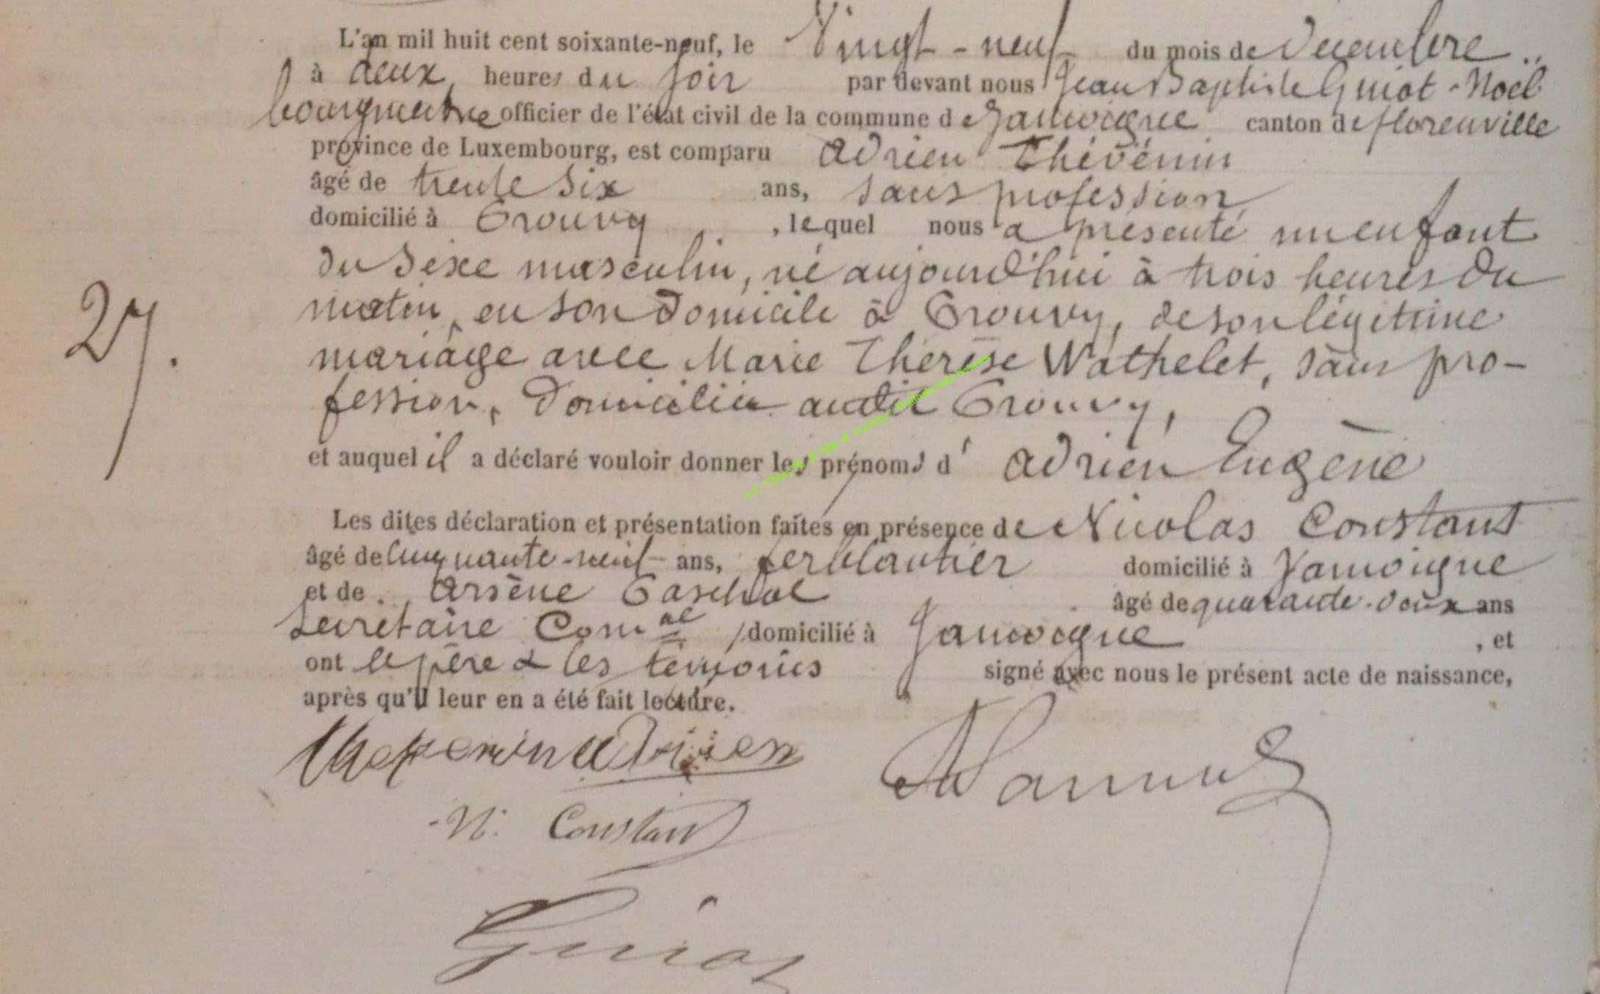 L'an mil huit cent soixante-neuf, le Vingt-neuf du mois de Décembre
à deux heures du soir par devant nous Jean Baptiste Guiot-Noël
bourgmestre officier de l'état civil de la commune de Jamoigne canton de florenville
province de Luxembourg, est comparu Adrien Thévénin
âgé de trente six ans, sans profession
domicilié à Prouvy, lequel nous a présenté un enfant
du sexe masculin, né aujourd'hui à trois heures du
27.
matin, en son domicile à Prouvy, de son légitime
mariage avec Marie Thérèse Wathelet, sans pro-
fession, domiciliée audit Prouvy,
et auquel il a déclaré vouloir donner les prénoms d'Adrien Eugène
Les dites déclaration et présentation faites en présence de Nicolas Constant
âgé de cinquante-neuf ans, ferblantier domicilié à Jamoigne
et de Arsène âgé de quarante-deux ans
secrétaire Com.al, domicilié à Jamoigne, et
ont le père & les témoins signé avec nous le présent acte de naissance,
après qu'il leur en a été fait lecture.
Thevenin Adrien
N. Constant
Guiot